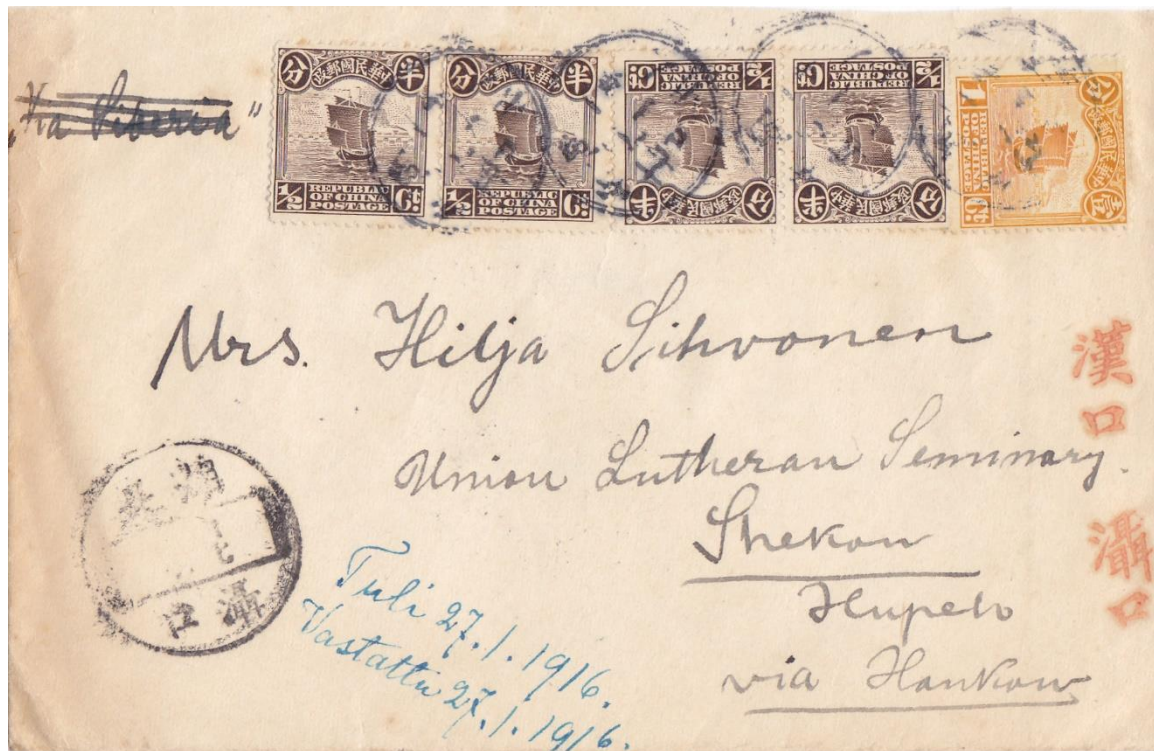 „Via Siberia”
中華民國郵政
半 分
1/2 REPUBLIC OF CHINA POSTAGE Ct.
中華民國郵政
半 分
1/2 REPUBLIC OF CHINA POSTAGE Ct.
中華民國郵政
半 分
1/2 REPUBLIC OF CHINA POSTAGE Ct.
中華民國郵政
半 分
1/2 REPUBLIC OF CHINA POSTAGE Ct.
中華民國郵政
壹 分
1 REPUBLIC OF CHINA POSTAGE Ct.
Mrs. Hilja Sihvonen
Union Lutheran Seminary.
Shekow
Hupeh
via Hankow
漢口
灄口
灄口
Tuli 27.1.1916.
Vastattu 27.1.1916.